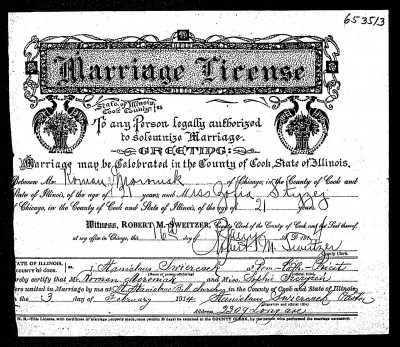 653513
Marriage License
State of Illinois,
Cook County, ss
To any Person legally authorized
to solemnize Marriage.
GREETING:
Marriage may be Celebrated in the County of Cook, State of Illinois.
Between Mr. Roman Mroniak of Chicago, in the County of Cook and
State of Illinois, of the age of 21 years, and Miss Zofia
Chicago, in the County of Cook and State of Illinois, of the age of 21 years.
Witness, ROBERT M. SWEITZER, County Clerk of the County of Cook and the Seal thereof,
at my office in Chicago, this 16
Robert M. Sweitzer
County Clerk.
STATE OF ILLINOIS,
County of Cook. I, Stanislaus Swierczek a Rom-Kath-Priest
hereby certify that Mr. Roman and Miss Sophie
were united in Marriage by me at St. Stanislaus B.M. Church in the County of Cook and State of Illinois,
on the 3 day of February 1914 Stanislaus Swierczek Pastor
2309 Long ave